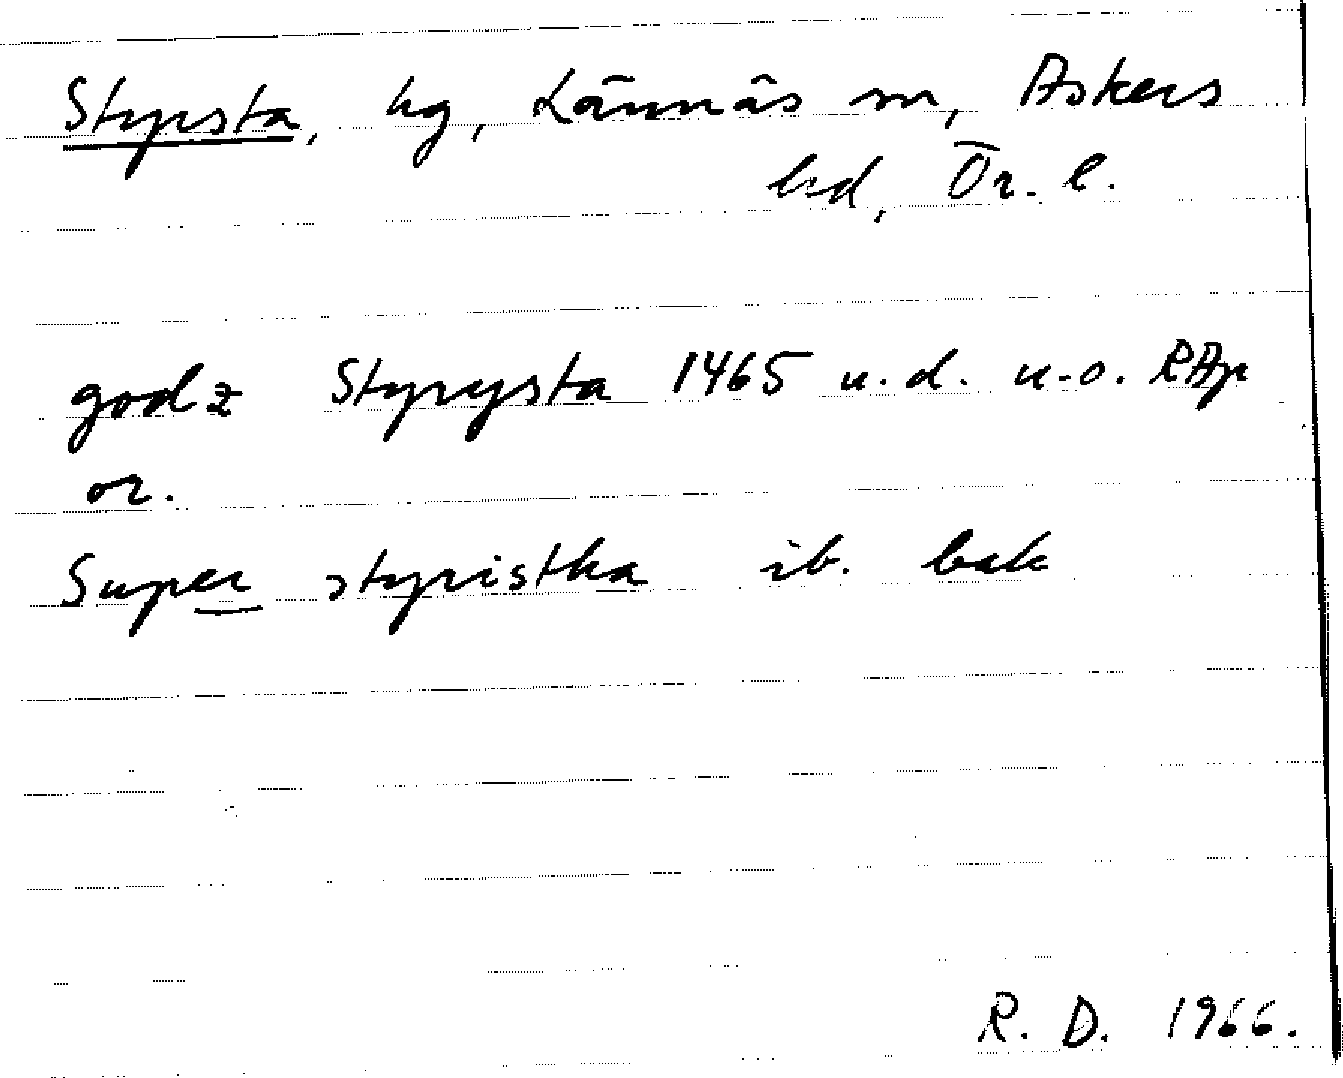 Styrsta, hg, Lännäs sn, Askers
hd, Ör. l.
godz Styrysta 1465 u.d. u.o. RAp
or.
Super styristha ib. bak
R. D. 1966.